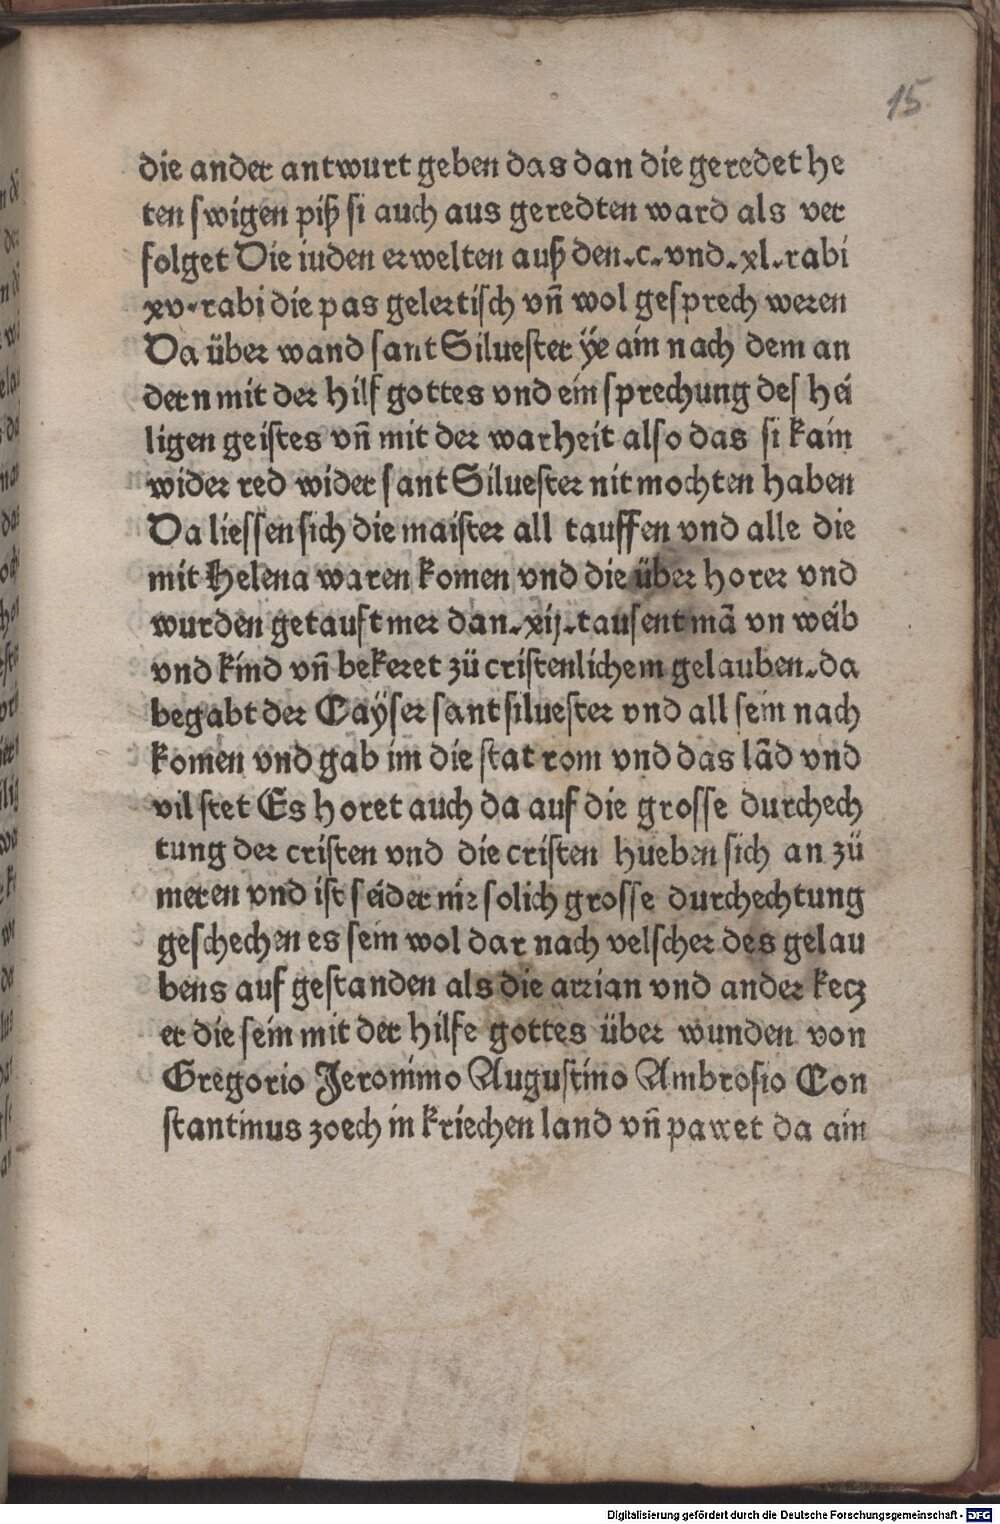 15
die ander antwurt geben das dan die geredet he
ten swigen piß si auch aus geredten ward als ver
folget Die iuden erwelten auß den.c.vnd.xl.rabi
xv.rabi die pas gelertisch vn̄ wol gesprech weren
Da über wand sant Siluester ÿe ain nach dem an
dern mit der hilf gottes vnd ein sprechung des hei
ligen geistes vn̄ mit der warheit also das si kain
wider red wider sant Siluester nit mochten haben
Da liessen sich die maister all tauffen vnd alle die
mit Helena waren komen vnd die über horer vnd
wurden getauft mer dan.xij.tausent mā vn weib
vnd kind vn̄ bekeret zü cristenlichem gelauben.da
begabt der Cayser sant siluester vnd all sein nach
komen vnd gab im die stat rom vnd das lād vnd
vil stet Es horet auch da auf die grosse durchech
tung der cristen vnd die cristen hueben sich an zü
meren vnd ist seider nie solich grosse durchechtung
geschechen es sein wol dar nach velscher des gelau
bens auf gestanden als die arrian vnd ander kecz
er die sein mit der hilfe gottes über wunden von
Gregorio Jeronimo Augustino Ambrosio Con
stantinus zoech in kriechen land vn̄ pawet da ain
Digitalisierung gefördert durch die Deutsche Forschungsgemeinschaft - DFG